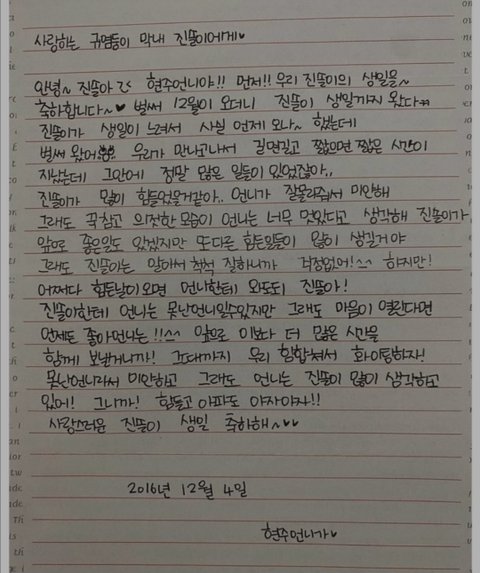 사랑하는 귀염둥이 막내 진뜰이에게♥
안녕~ 진뜰아 현주언니야!! 먼저!! 우리 진뜰이의 생일을~
축하합니다~♥ 벌써 12월이 오더니 진뜰이 생일까지 왔다
진뜰이가 생일이 느려서 사실 언제 오나~ 했는데
벌써 왔어 우리가 만나고나서 길면길고 짧으면 짧은 시간이
지났는데 그안에 정말 많은 일들이 있었잖아..
진뜰이가 많이 힘들었을거같아.. 언니가 잘몰라줘서 미안해
그래도 꾹참고 의젓한 모습이 언니는 너무 멋있다고 생각해 진뜰이가
앞으로 좋은일도 있겠지만 또다른 힘든일들이 많이 생길거야
그래도 진뜰이는 알아서 척척 잘하니까 걱정없어!^^ 하지만!
어쩌다 힘든날이 오면 언니한테 와도되 진뜰아!
진뜰이한테 언니는 못난언니일수있지만 그래도 마음이 열린다면
언제든 좋아언니는!!^^ 앞으로 이보다 더 많은 시간을
함께 보낼거니까! 그때까지 우리 힘합쳐서 화이팅하자!
못난언니라서 미안하고 그래도 언니는 진뜰이 많이 생각하고
있어! 그니까! 힘들고 아파도 아자아자!!
사랑스러운 진뜰이 생일 축하해~♥♥
2016년 12월 4일
현주언니가♥